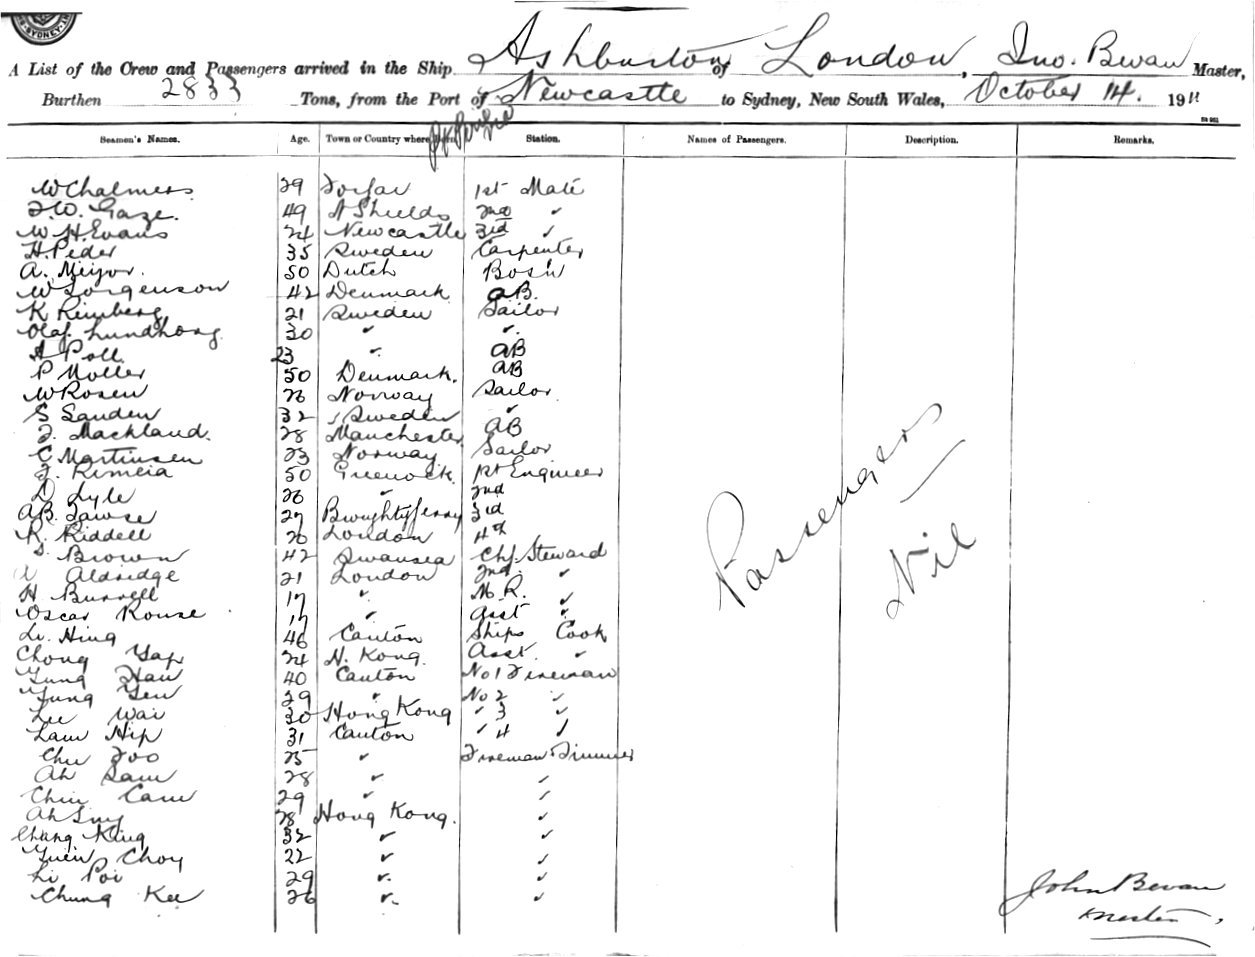 SYDNEY
A List of the Crew and Passengers arrived in the Ship Ashburton of London, Jno. Bevan Master,
Burthen 2833 Tons, from the Port of Newcastle to Sydney, New South Wales, October 14. 1911
Seamen's Names. Age. Town or Country where Born. Station. Names of Passengers. Description. Remarks.
W Chalmers 29 Forfar 1st Mate
F.W. Gaze. 49 N Shields 2nd "
W.H. Evans 24 Newcastle 3rd "
H. Peder 35 Sweden Carpenter
A. Meijor. 50 Dutch Bos'n
W Jorgenson 42 Denmark AB.
K Reinberg 21 Sweden Sailor
Olaf Lundhong 30 " "
A Poll 23 " AB
P Moller 50 Denmark. AB
W Rosen 26 Norway Sailor
S Sanden 32 Sweden "
J. Mackland. 28 Manchester AB
C Martinsen 23 Norway Sailor
50 Greenock 1st Engineer
D Lyle 26 " 2nd
AB. Tawse 27 Broughty Ferry 3rd
R. Riddell 26 London 4th
S. Brown 42 Swansea Chf. Steward
A Aldridge 21 London 2nd "
H Burrell 17 " M.R. "
Oscar Rouse 17 " Asst "
Li Hing 46 Canton Ships Cook
Chong Yap 24 H. Kong. Asst. "
Yung Hau 40 Canton No 1 Fireman
Yung Yew 29 " No 2 "
Lee Wai 30 Hong Kong " 3 "
Lam Hip 31 Canton " 4 "
Chu Foo 25 " Fireman Trimmer
Ah Sam 28 " "
Chin Cam 29 " "
Ah 28 Hong Kong. "
Chung King 32 " "
Yuen Choy 22 " "
Li Poi 29 " "
Chung Kee 26 " "
Passengers
Nil
John Bevan
Master